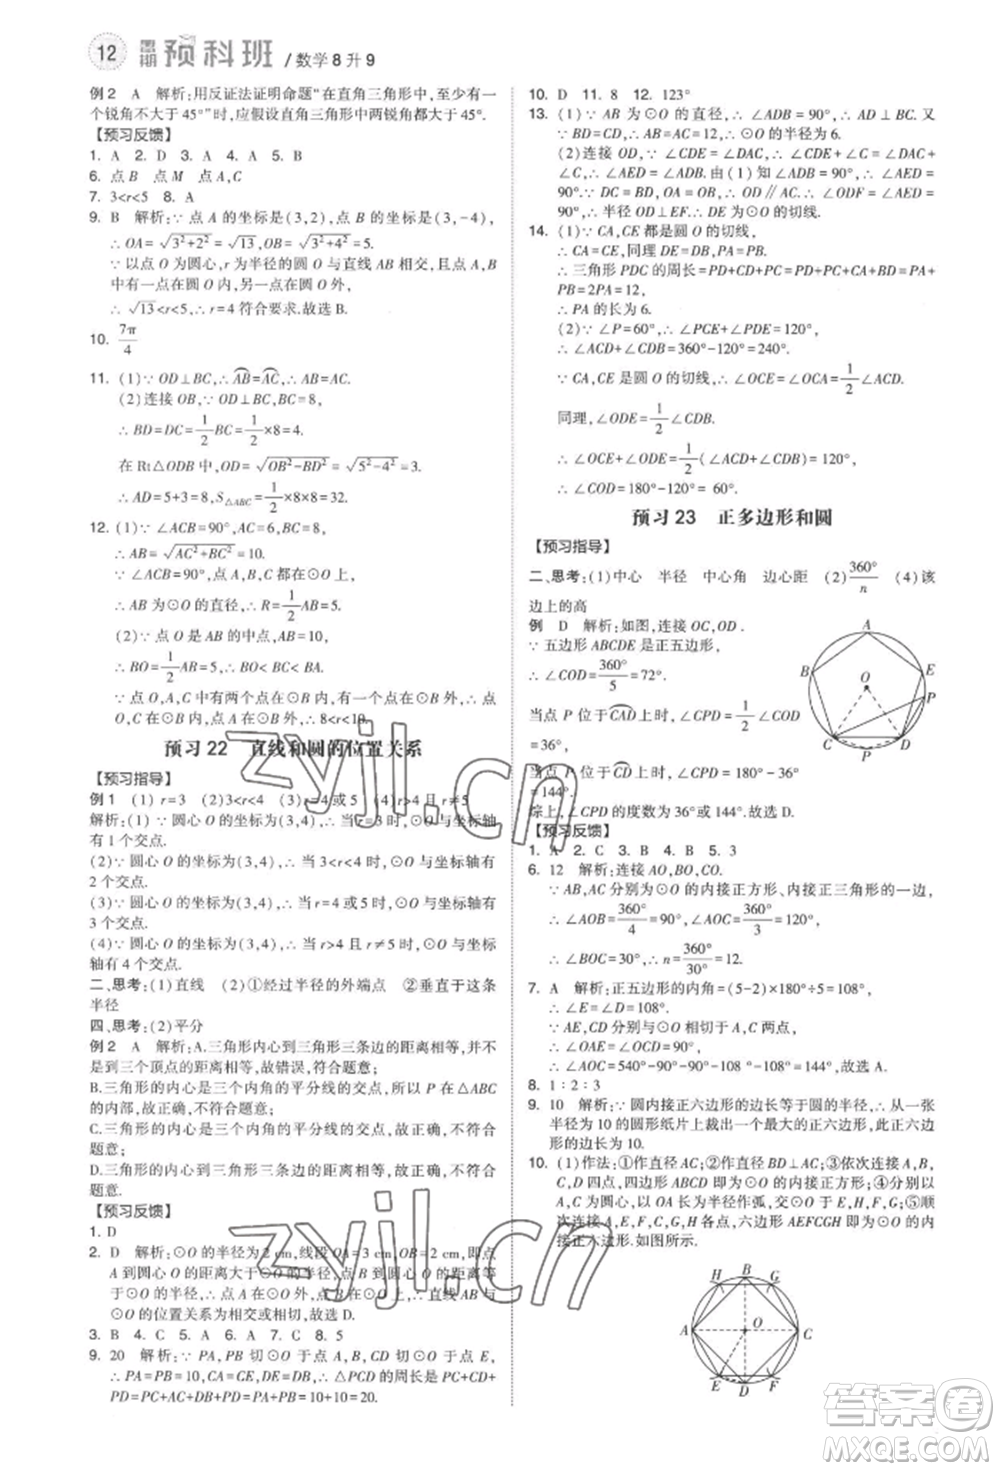 12 暑期 预科班 /数学8升9
例2 A 解析:用反证法证明命题“在直角三角形中,至少有一个锐角不大于45°”时,应假设直角三角形中两锐角都大于45°.
【预习反馈】
1. A 2. D 3. A 4. A 5. B
6. 点B 点M 点A,C
7. 3<r<5 8. A
9. B 解析:∵点A的坐标是(3,2),点B的坐标是(3,-4),
∴OA=√(3²+2²)=√13,OB=√(3²+4²)=5.
∵以点O为圆心,r为半径的圆与直线AB相交,且点A,B中有一点在圆O内,另一点在圆O外,
∴√13<r<5,∴r=4符合要求.故选B.
10. 7π/4
11. (1)∵OD⊥BC,∴AB=AC,∴AB=AC.
(2)连接OB,∵OD⊥BC,BC=8,
∴BD=DC=1/2BC=1/2×8=4.
在Rt△ODB中,OD=√(OB²-BD²)=√(5²-4²)=3,
∴AD=5+3=8,S△ABC=1/2×8×8=32.
12. (1)∵∠ACB=90°,AC=6,BC=8,
∴AB=√(AC²+BC²)=10.
∵∠ACB=90°,△ABC内接于⊙O,
∴AB为⊙O的直径,∴R=1/2AB=5.
(2)∵点O是AB的中点,
∴BO=1/2AB=5,∴BO<BC<BA.
∵点O,A,C中有两个点在⊙B内,有一个点在⊙B外,∴点O,C在⊙B内,点A在⊙B外,∴8<r<10.
预习22 直线和圆的位置关系
【预习指导】
例1 (1)r=3 (2)3<r<4 (3)r=4或5 (4)r>4且r≠5
解析:(1)∵圆心O的坐标为(3,4),∴当r=3时,⊙O与坐标轴有1个交点.
(2)∵圆心O的坐标为(3,4),∴当3<r<4时,⊙O与坐标轴有2个交点.
(3)∵圆心O的坐标为(3,4),∴当r=4或5时,⊙O与坐标轴有3个交点.
(4)∵圆心O的坐标为(3,4),∴当r>4且r≠5时,⊙O与坐标轴有4个交点.
二、思考:(1)直线 (2)①经过半径的外端点 ②垂直于这条半径
四、思考:(2)平分
例2 A 解析:A.三角形内心到三角形三条边的距离相等,而不是到三个顶点的距离相等,故错误,符合题意;
B.三角形的内心是三个内角的平分线的交点,所以P在△ABC的内部,故正确,不符合题意;
C.三角形的内心是三个内角的平分线的交点,故正确,不符合题意;
D.三角形的内心到三角形三条边的距离相等,故正确,不符合题意.
【预习反馈】
1. D
2. D 解析:⊙O的半径为2 cm,线段OA=3 cm,OB=2 cm,即点A到圆心O的距离大于圆的半径,点B到圆心O的距离等于圆的半径,∴点A在⊙O外,点B在⊙O上,∴直线AB与⊙O的位置关系为相交或相切.故选D.
3. B 4. C 5. A 6. A 7. C 8. 5
9. 20 解析:∵PA,PB分别切⊙O于点A,B,CD切⊙O于点E,∴PA=PB=10,CA=CE,DE=DB,∴△PCD的周长=PC+CD+PD=PC+AC+DB+PD=PA+PB=10+10=20.
10. D 11. 8 12. 123°
13. (1)∵AB为⊙O的直径,∴∠ADB=90°,∴AD⊥BC.又∵BD=CD,∴AB=AC=12,∴⊙O的半径为6.
(2)连接OD,∵∠EDF=∠DAC,∠ADF=90°,∠AED=∠ADB.由(1)知∠DAB=∠DAC,∵BD=CD,OA=OB,∴OD∥AC.∴∠ODF=∠AED=90°,∴半径OD⊥EF.∴DE为⊙O的切线.
14. (1)∵CA,CE都是圆O的切线,
∴CA=CE,同理DE=DB,PA=PB,
∴三角形PDC的周长=PD+CD+PC=PD+PC+CA+BD=PA+PB=2PA=12,
∴PA的长为6.
(2)∵∠P=60°,∴∠PCE+∠PDE=120°,
∴∠ACD+∠CDB=360°-120°=240°.
∵CA,CE是圆O的切线,∴∠OCE=∠OCA=1/2∠ACD.
同理,∠ODE=1/2∠CDB.
∴∠OCE+∠ODE=1/2(∠ACD+∠CDB)=120°,
∴∠COD=180°-120°=60°.
预习23 正多边形和圆
【预习指导】
二、思考:(1)中心 半径 中心角 边心距 (2)360°/n (4)该边上的高
例 D 解析:如图,连接OC,OD.
∵五边形ABCDE是正五边形,
∴∠COD=360°/5=72°.
当点P位于CAD上时,∠CPD=1/2∠COD=36°,
当点P位于CD上时,∠CPD=180°-36°=144°.
综上,∠CPD的度数为36°或144°.故选D.
A B C D E O P P
【预习反馈】
1. A 2. C 3. B 4. B 5. 3
6. 12 解析:连接AO,BO,CO.
∵AB,AC分别为⊙O的内接正方形、内接正三角形的一边,
∴∠AOB=360°/4=90°,∠AOC=360°/3=120°,
∴∠BOC=30°,∴n=360°/30°=12.
7. A 解析:正五边形的内角=(5-2)×180°÷5=108°,
∴∠E=∠D=108°.
∵AE,CD分别与⊙O相切于A,C两点,
∴∠OAE=∠OCD=90°,
∴∠AOC=540°-90°-90°-108°-108°=144°.
8. 1∶2∶3
9. 10 解析:∵圆内接正六边形的边长等于圆的半径,∴从一张半径为10的圆形纸片上裁剪出一个最大的正六边形,此正六边形的边长为10.
10. (1)作法:①作直径AC;②作直径BD⊥AC;③依次连接AB,BC,CD,DA,四边形ABCD即为⊙O的内接正方形;④分别以A,C为圆心,OA长为半径作弧,交⊙O于点E,H,F,G;⑤顺次连接AE,EF,FC,CG,GH,HA各点,六边形AEFCGH即为⊙O的内接正六边形.如图所示.
H B G A O C E D F
zyjl.cn
zyjl.cn
答案圈
MXQE.COM